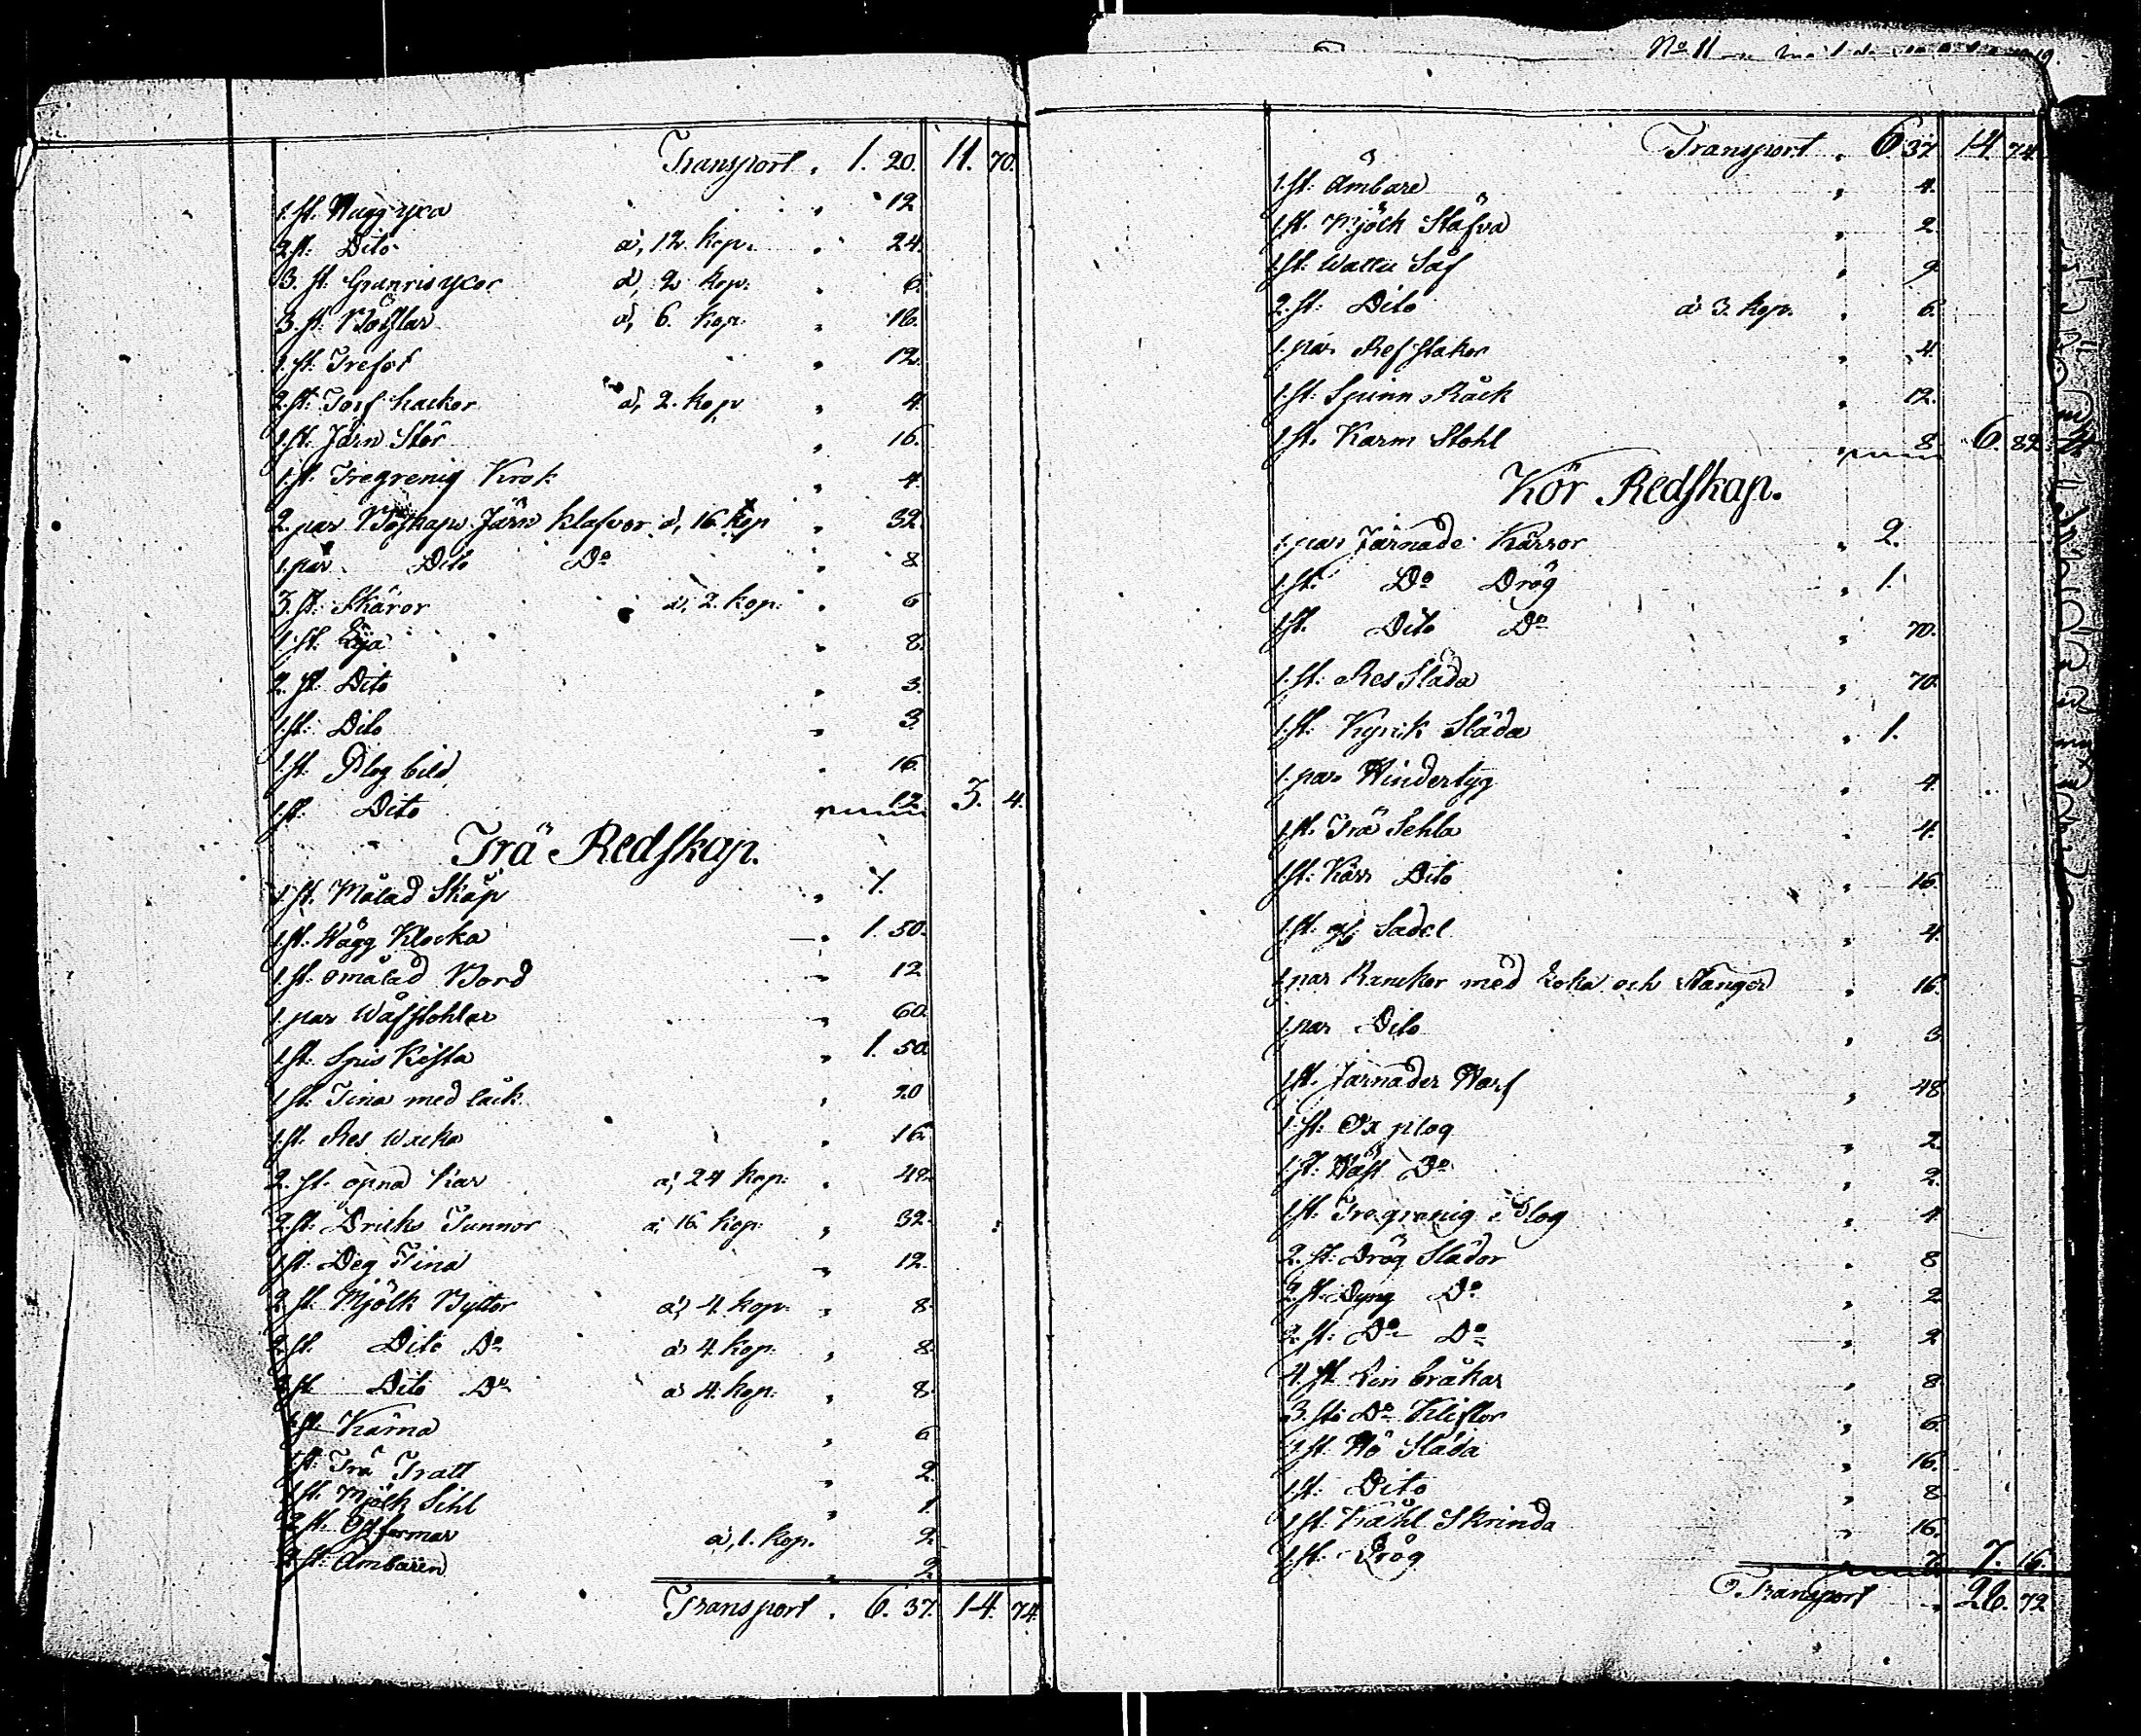 Transport. 1. 20. 11. 70.
1. st. Hugg yxa " 12
2. st. Dito á, 12. kop. " 24.
3. st. Granris yxor á, 2 kop. " 6.
3. st. á, 6. kop. " 18.
1. st. Trefot " 12.
2. st. Torf hackor á, 2. kop " 4.
1. st. Järn Stör " 16.
1. st. Tregrenig Krok " 4.
2. par Böskaps Järn klafvor á, 16 kop " 32.
1. par Dito Do " 8
3. st. Skäror á, 2. kop. " 6
1. st. Lija " 8.
2. st. Dito " 3.
1. st. Dito " 3
1. st. Plog bild " 16.
1. st. Dito 12 3. 4.
Trä Redskap.
1. st. Målad Skåp " 1.
1. st. Wägg Klocka " 1. 50.
1. st. omålad Bord " 12
1. par Wäfstohlar " 60
1. st. Spis Kista " 1. 50
1. st. Tina med låck " 20
1. st. Res Wacka " 16
2. st. öpna Kar á, 24 kop. " 48.
2. st. Dricks Tunnor á 16 kop. " 32.
1. st. Deg Tina " 12.
2. st. Mjölk Byttor á, 4. kop. " 8
2. st. Dito Do á 4 kop. " 8.
2. st. Dito Do á 4. kop. " 8.
1. st. Kärna " 6
1. st. Trä Tratt " 2.
1. st. Mjölk Sihl " 1.
2. st. Ostformar á, 1. kop. 2.
2. st. Ämbaren " 2.
Transport. 6. 37. 14. 74.
No 11
Transport. 6. 37 14. 74.
1. st. Ämbare " 4.
1. st. Mjölk Stäfva " 2.
1. st. Wattu Så
2. st. Dito á 3. kop. " 6.
1. par Refstakor " 4.
1. st. Spinn Råck " 12.
1. st. Karm Stohl " 8 6. 82.
Kör Redskap.
1. par Järnade Kärror " 2.
1. st. Do Drög " 1.
1. st. Dito Do " 70.
1. st. Res Släda " 70.
1. st. Kyrik Släda " 1.
1. par Hindertyg " 4.
1. st. Trä Sehla " 4.
1. st. Kärr Dito " 16
1. st. Sadel " 4.
1. par Ranckor med och Stänger " 16.
1. par Dito " 3
1. st. Järnader Harf " 48
1. st. Ox plog " 2.
1. st. Häst Do " 2.
1. st. Tregrenig Plog " 4
2. st. Drög Slädor " 8
2. st. Dyng Do " 2.
2. st. Do Do " 2
4. st. Lin bråkar " 8
3. st. Do Kliftor " 6.
1. st. Hö Släda " 16.
1. st. Dito " 8
1. st. Skrinda " 16.
1. st. Drög 7. 16.
Transport 26. 72